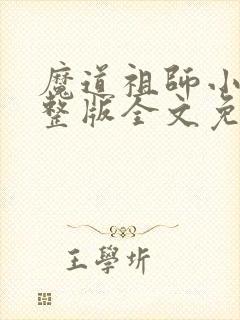 魔道祖師小
整版全文免
王學圻